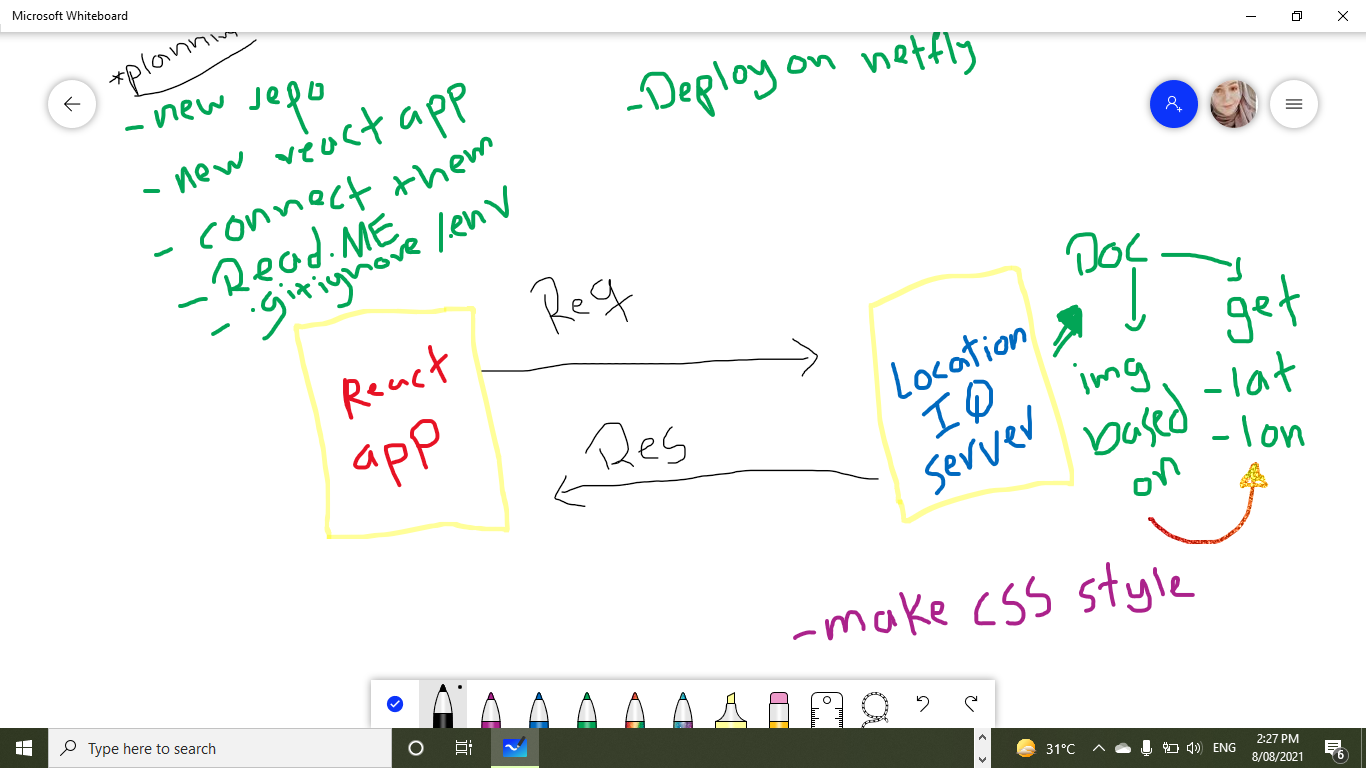 Microsoft Whiteboard
*planning
- new repo
- new react app
- connect them
- Read.ME
- .gitignore /.env
- Deploy on netfly
React
app
Req
Res
Location
IQ
server
DOC
get
- lat
- lon
img
based
on
- make CSS style
Type here to search
31°C
ENG
2:27 PM
8/08/2021
6